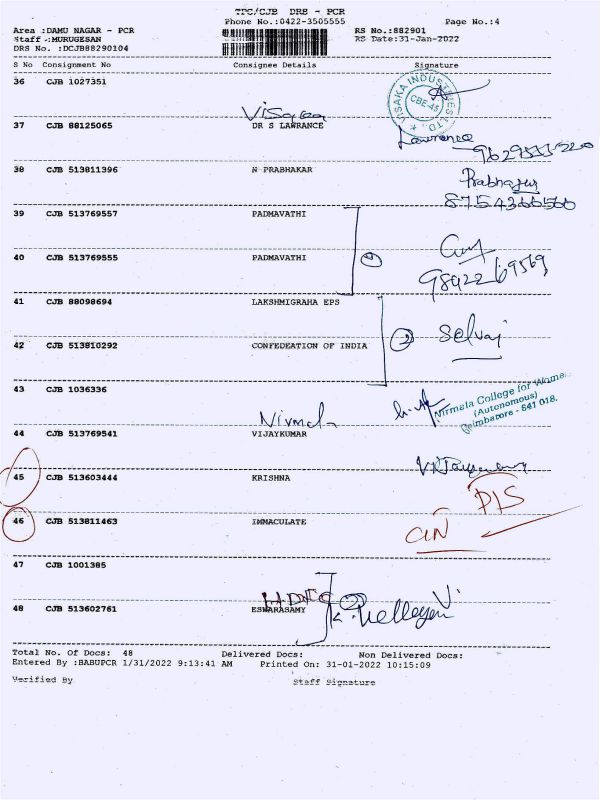 TPC/CJB DRS - PCR
Phone No.:0422-3505555 Page No.:4
Area :DAMU NAGAR - PCR RS No.:882901
Staff :MURUGESAN RS Date:31-Jan-2022
DRS No. :DCJB88290104
S No Consignment No Consignee Details Signature
36 CJB 1027351
VISAKA INDUSTRIES LTD. CBE-45
Visaka
37 CJB 88125065 DR S LAWRANCE
Lawrence
38 CJB 513811396 N PRABHAKAR
Prabhagar
8754366500
39 CJB 513769557 PADMAVATHI
40 CJB 513769555 PADMAVATHI
9892269569
41 CJB 88098694 LAKSHMIGRAHA EPS
2 Selvaj
42 CJB 513810292 CONFEDEATION OF INDIA
43 CJB 1036336
Nirmala College for Women
(Autonomous)
Coimbatore - 641 018.
Nirmala
44 CJB 513769541 VIJAYKUMAR
45 CJB 513603444 KRISHNA
46 CJB 513811463 IMMACULATE
47 CJB 1001385
HDFC
48 CJB 513602761 ESWARASAMY
Total No. Of Docs: 48 Delivered Docs: Non Delivered Docs:
Entered By :BABUPCR 1/31/2022 9:13:41 AM Printed On: 31-01-2022 10:15:09
Verified By Staff Signature